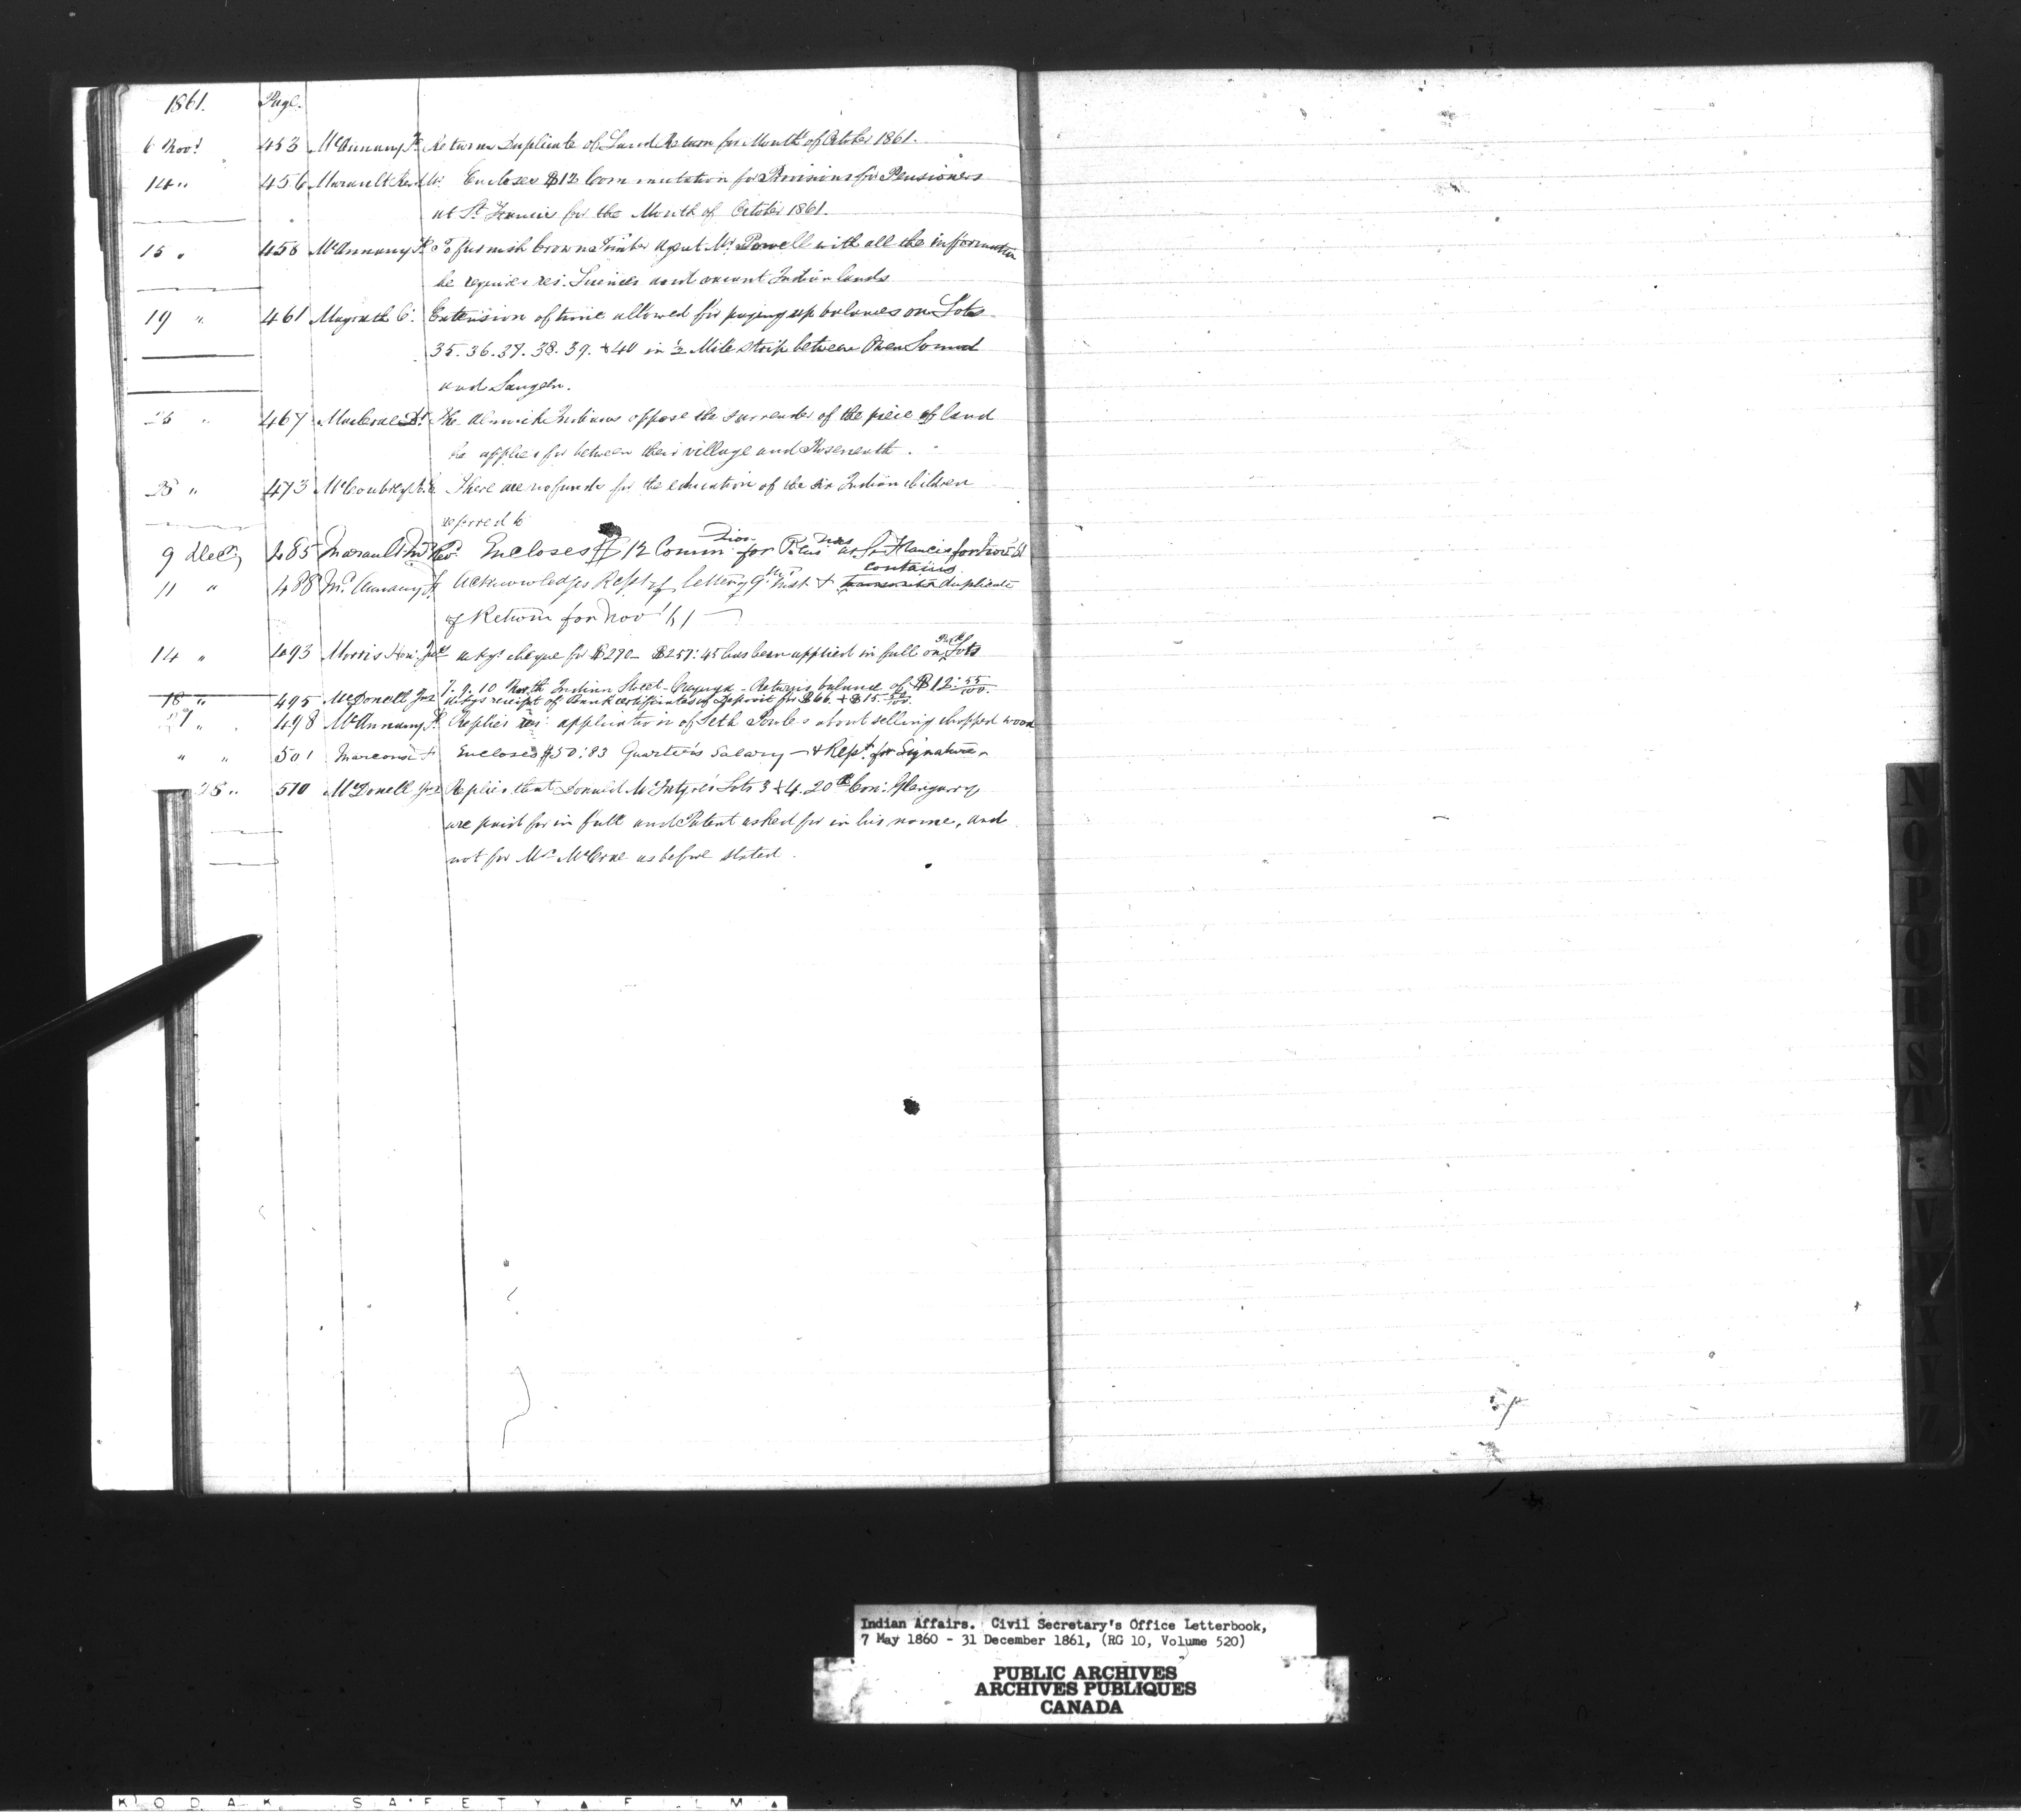 1861. Page.
6 Novr 453 McAnnany Fs Returns Duplicate of Land Return for Month of October 1861.
14 " 456 Marault Revd Mr. Encloses $12 Commutation for Provisions for Pensioners
at St Francis for the Month of October 1861.
15 " 458 McAnnany Fs To furnish Crown Timber Agent Mr Powell with all the information
he requires res: Licences and vacant Indian lands
19 " 461 Magrath C. Extension of time allowed for paying up balances on Lots
35. 36. 37. 38. 39. & 40 in ½ Mile strip between Owen Sound
and Saugeen.
" 467 Dr. The Alnwick Indians oppose the surrender of the piece of land
he applies for between their village and Roseneath.
25 " 473 There are no funds for the education of the six Indian Children
referred to
9 Decr 485 Marault Revd Encloses $12 Commn for Pens at St Francis for Novr 61
11 " 488 McAnnany Fs Acknowledges Rcpt of letter of 9th inst & contains transmits duplicate
of Return for Nov '61
14 " 493 Morris Hon: Jas ackgs cheque for $270 - $257:45 has been applied in full on Park Lots
7. 9. 10 North Indian Street - Cayuga - Returns balance of $12:55/100.
18 " 495 McDonell Jas ackgs receipt of Bank certificates of Deposit for $66. & $15 50/100.
27 " 498 McAnnany Fs Replies res: application of Seth about selling chopped wood
" " 501 Encloses $50:83 Quarter's Salary - & Rept. for Signature
28 " 510 McDonell Jas Replies that Donald McIntyre's Lots 3 & 4. 20th Con: Glengarry
are paid for in full and Patent asked for in his name, and
not for Mr McCrae as before stated.
N
O
P
Q
R
S
T
V
W
X
Y
Z
Indian Affairs. Civil Secretary's Office Letterbook,
7 May 1860 - 31 December 1861, (RG 10, Volume 520)
PUBLIC ARCHIVES
ARCHIVES PUBLIQUES
CANADA
KODAK SAFETY FILM